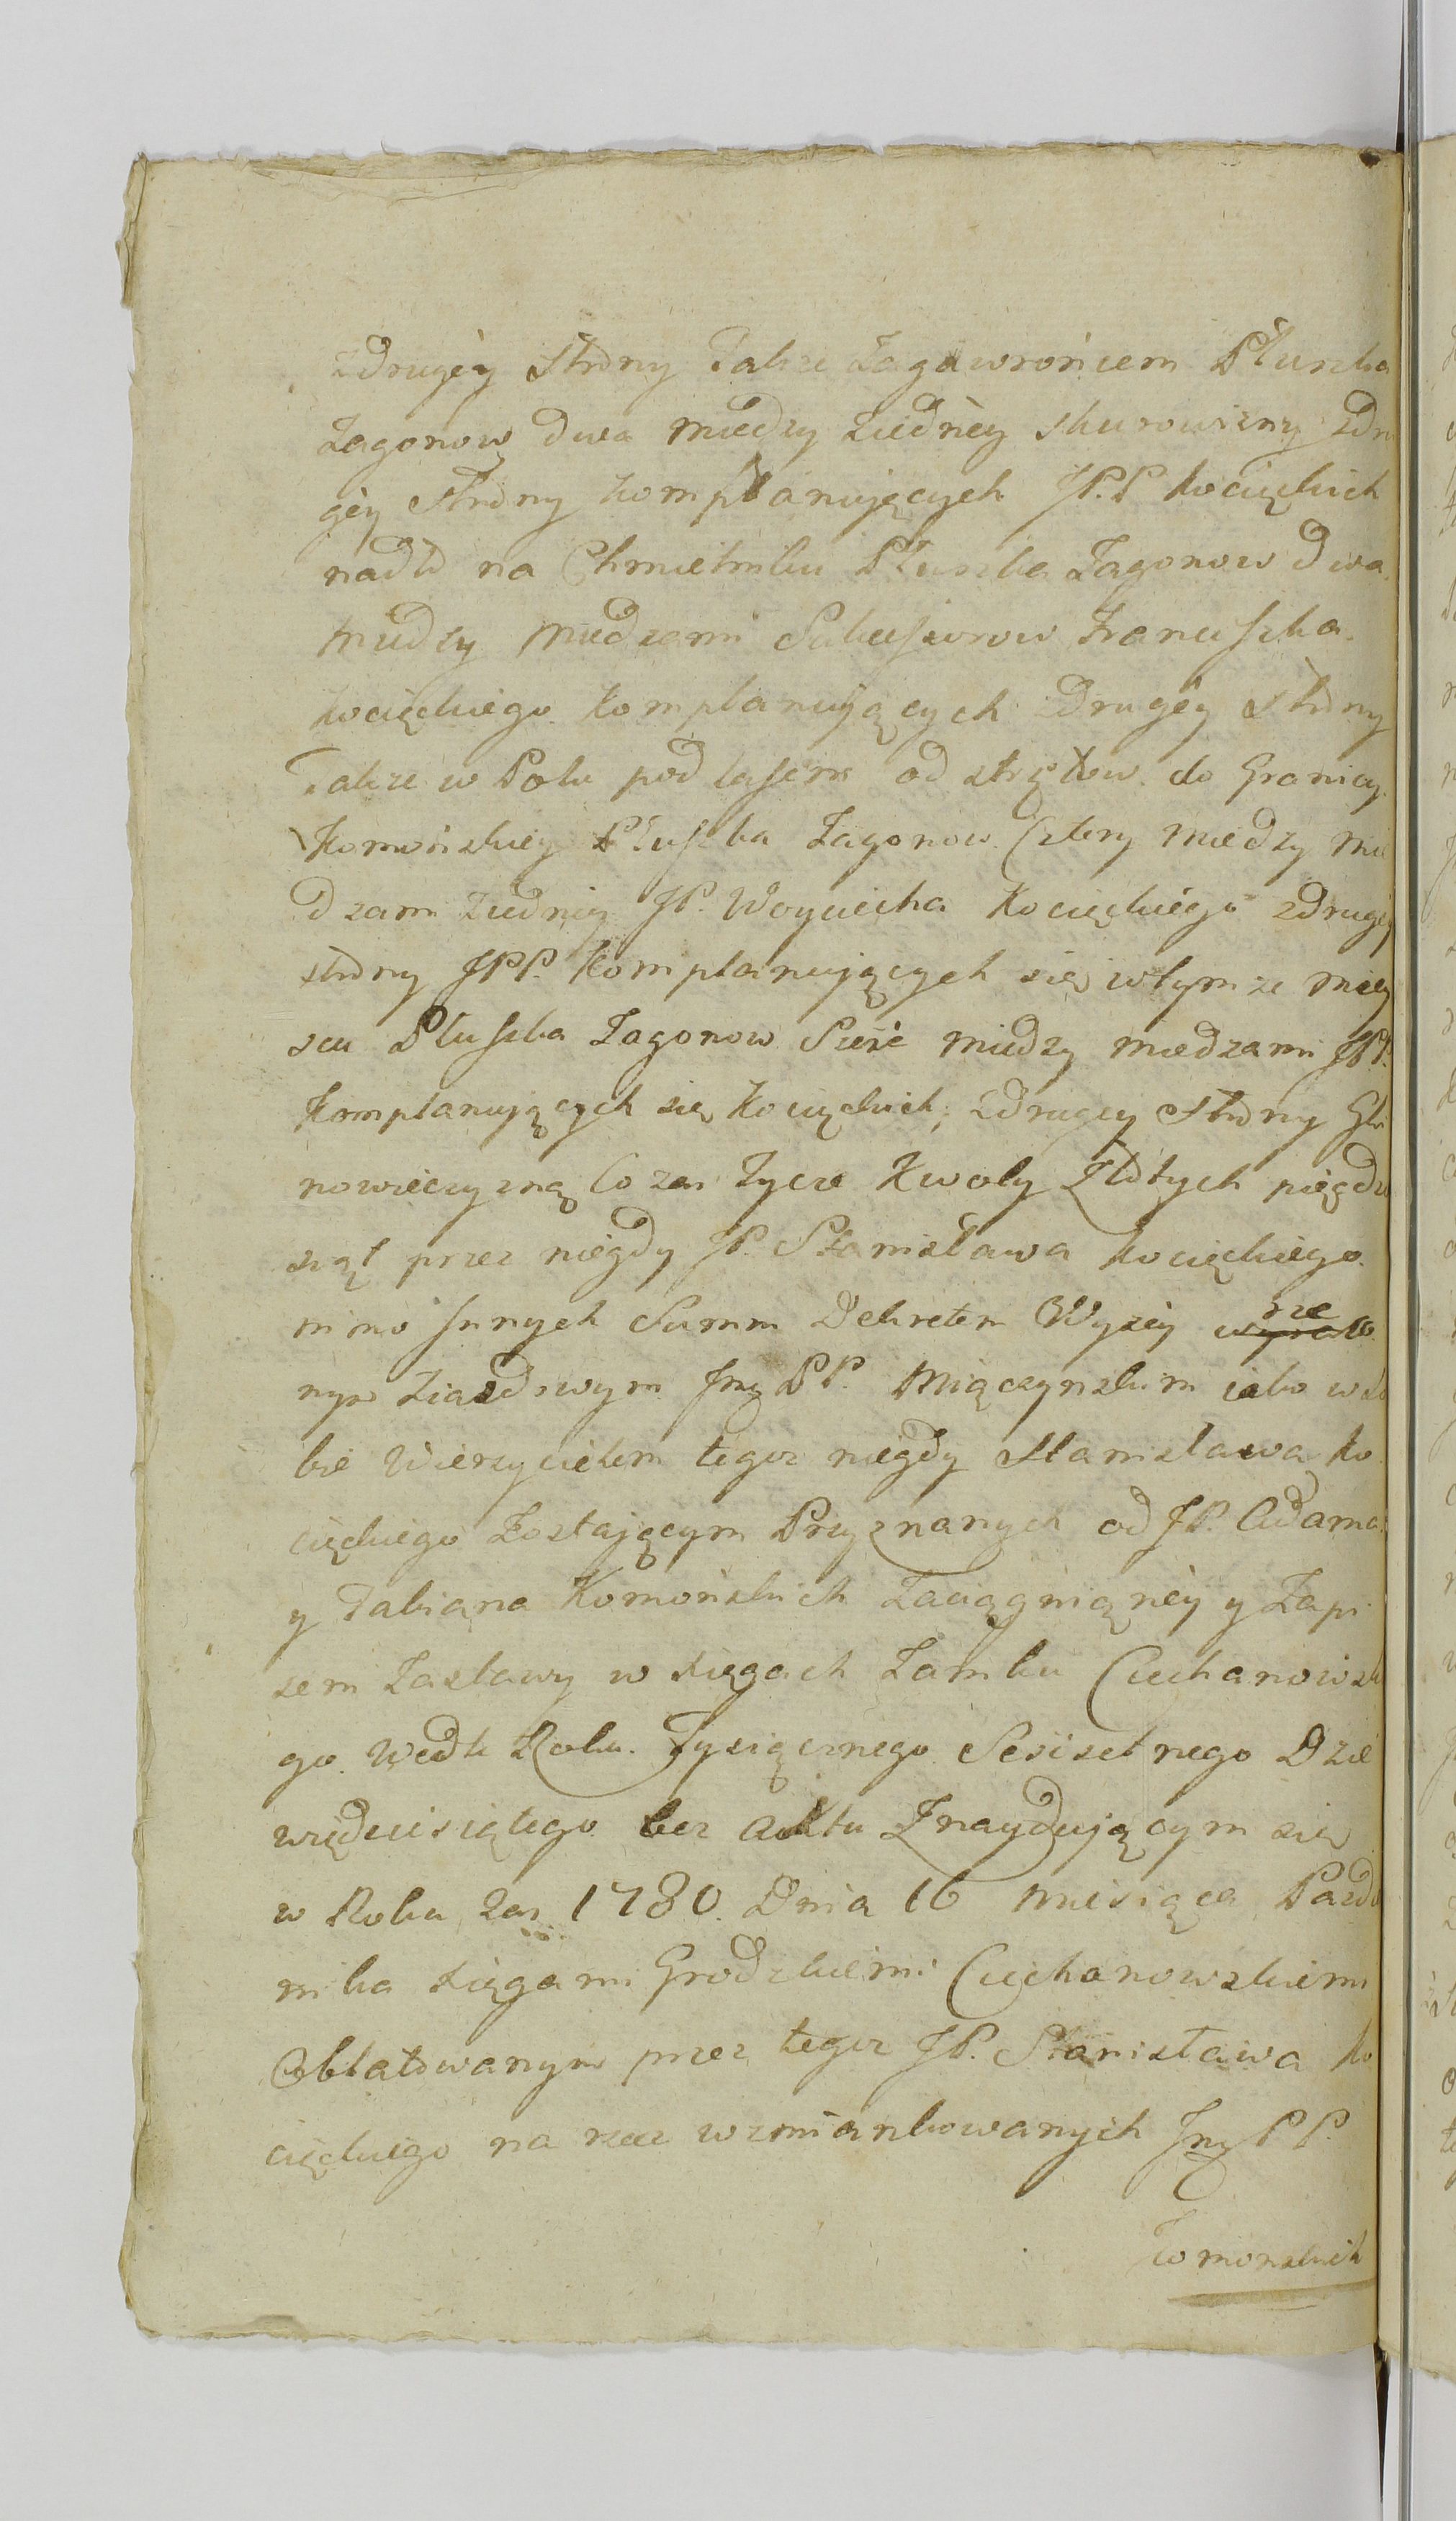 zdrugiey strony Także Zagaworońcem Płuszka
Zagonow dwa miedzy ziedney skurowizny zdru
giey strony komplanujących JP.P. Kocięckich
nadto na Chmielniku Płuszka Zagonow dwa
miedzy miedzami Sukcessorow Franciszka
Kocięckiego komplanujących zdrugiey strony
Także w Polu pod lasem od strzętow do Granicy
Komońskiey Płuszka Zagonow Cztery miedzy mie
dzami ziedney JP. Woyciecha Kocięckiego zdrugiey
strony JPP. komplanujących się wtymze miey
scu Płuszka Zagonow Sześć miedzy miedzami JPP.
komplanujących się Kocięckich, zdrugiey strony Gli
nowieczyzną Co zas tycze Kwoty Złotych pięędzie
siąt przez niegdy JP. Stanisława Kocięckiego
mimo Innych Summ Dekretem Wyżey rze
nym ziazdowym Jmć PP. Miączynskim iako w
bie Wierzycielem tegoż niegdy Stanisława Ko
cięckiego Zostającym Przyznanych od JP. Adama
y Fabiana Komońskich Zaciągnioney y Zapi
sem Zastawy w xięgach Zamku Ciechanowski
go wedle Roku Tysiącznego Sześsetnego Dzie
więdziesiątego bez aktu Znayduiącym się
w Roku zas 1780. Dnia 16 miesiąca Pazdz
nika xięgami Grodzkiemi Ciechanowskiemi
Oblatowanym przez tegoż JP. Stanisława Ko
cięckiego na rzecz wzmiankowanych Jmć PP.
Komonskich